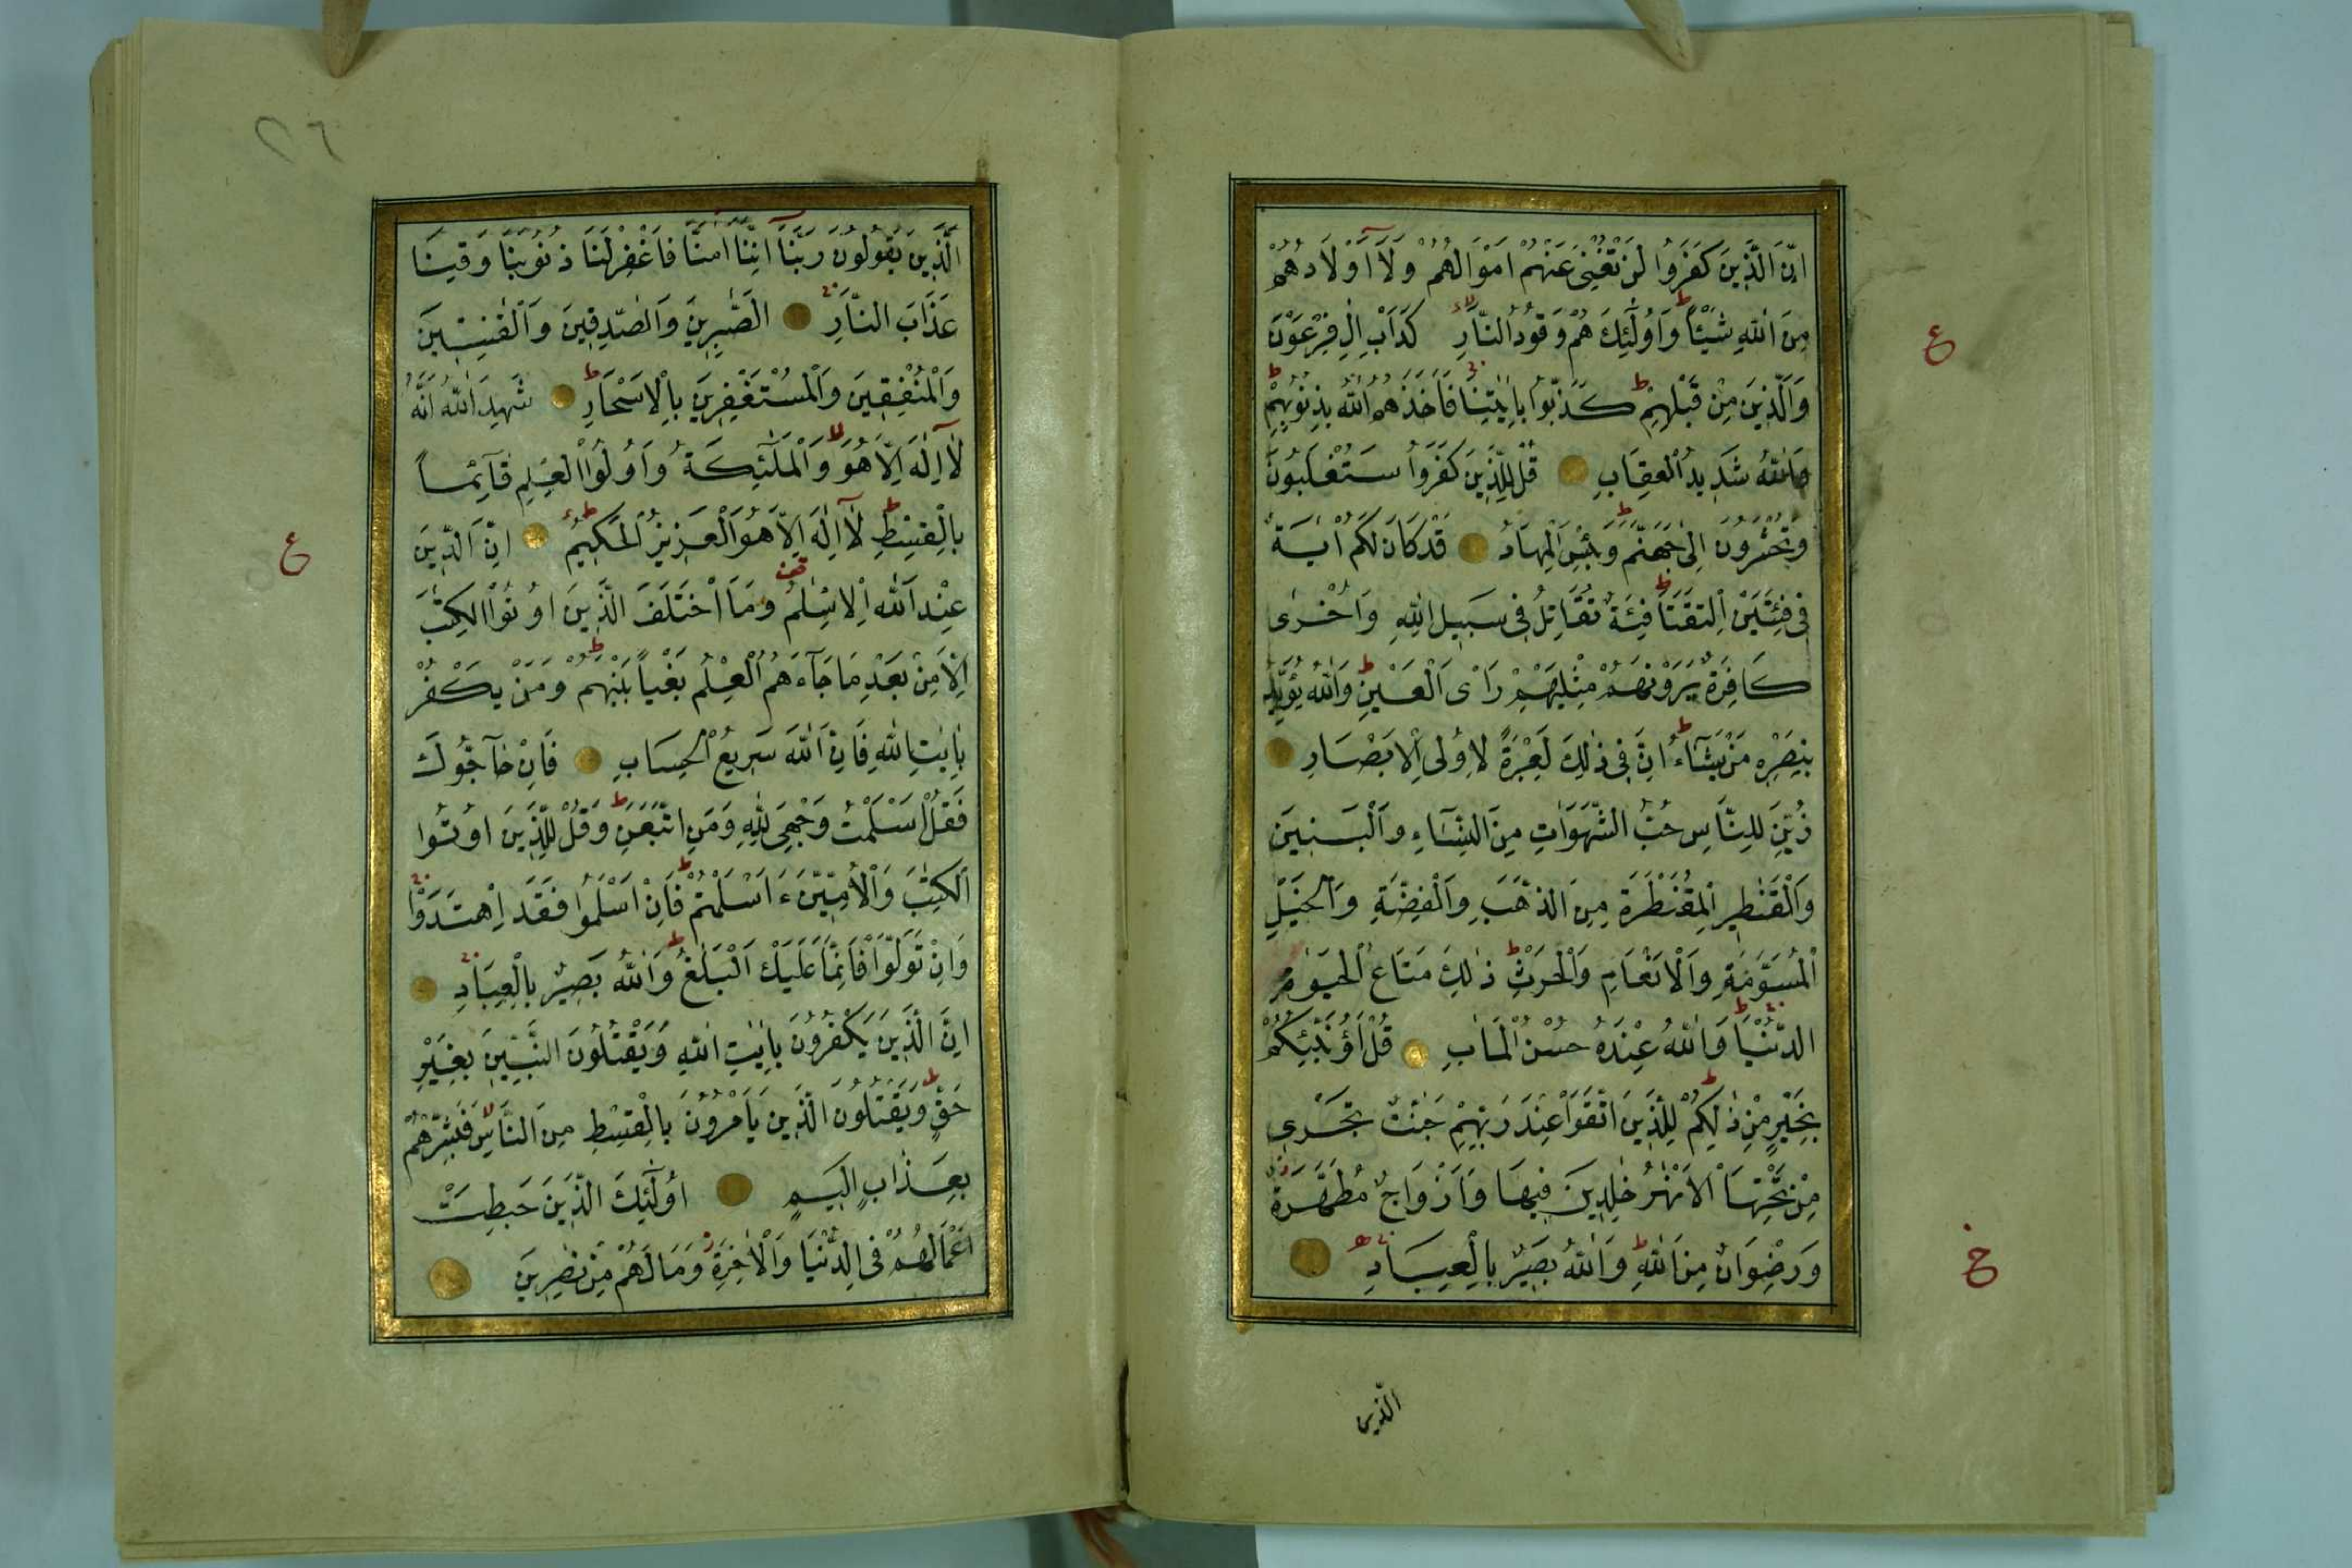 اِنَّ الَّذِينَ كَفَرُوا لَنْ تُغْنِىَ عَنْهُمْ اَمْوَالُهُمْ وَلَآ اَوْلَادُهُمْ
مِنَ اللّٰهِ شَيْئًا وَاُولٰٓئِكَ هُمْ وَقُودُ النَّارِ كَدَاْبِ اٰلِ فِرْعَوْنَ
وَالَّذِينَ مِنْ قَبْلِهِمْ كَذَّبُوا بِاٰيٰتِنَا فَاَخَذَهُمُ اللّٰهُ بِذُنُوبِهِمْ
وَاللّٰهُ شَدِيدُ الْعِقَابِ قُلْ لِلَّذِينَ كَفَرُوا سَتُغْلَبُونَ
وَتُحْشَرُونَ اِلٰى جَهَنَّمَ وَبِئْسَ الْمِهَادُ قَدْ كَانَ لَكُمْ اٰيَةٌ
فِى فِئَتَيْنِ الْتَقَتَا فِئَةٌ تُقَاتِلُ فِى سَبِيلِ اللّٰهِ وَاُخْرٰى
كَافِرَةٌ يَرَوْنَهُمْ مِثْلَيْهِمْ رَاْىَ الْعَيْنِ وَاللّٰهُ يُؤَيِّدُ
بِنَصْرِهِ مَنْ يَشَآءُ اِنَّ فِى ذٰلِكَ لَعِبْرَةً لِاُولِى الْاَبْصَارِ
زُيِّنَ لِلنَّاسِ حُبُّ الشَّهَوَاتِ مِنَ النِّسَآءِ وَالْبَنِينَ
وَالْقَنٰطِيرِ الْمُقَنْطَرَةِ مِنَ الذَّهَبِ وَالْفِضَّةِ وَالْخَيْلِ
الْمُسَوَّمَةِ وَالْاَنْعَامِ وَالْحَرْثِ ذٰلِكَ مَتَاعُ الْحَيٰوةِ
الدُّنْيَا وَاللّٰهُ عِنْدَهُ حُسْنُ الْمَاٰبِ قُلْ اَؤُنَبِّئُكُمْ
بِخَيْرٍ مِنْ ذٰلِكُمْ لِلَّذِينَ اتَّقَوْا عِنْدَ رَبِّهِمْ جَنّٰتٌ تَجْرِى
مِنْ تَحْتِهَا الْاَنْهٰرُ خٰلِدِينَ فِيهَا وَاَزْوَاجٌ مُطَهَّرَةٌ
وَرِضْوَانٌ مِنَ اللّٰهِ وَاللّٰهُ بَصِيرٌ بِالْعِبَادِ
الّذين
ع
خ
٢٦
الَّذِينَ يَقُولُونَ رَبَّنَآ اِنَّنَآ اٰمَنَّا فَاغْفِرْ لَنَا ذُنُوبَنَا وَقِنَا
عَذَابَ النَّارِ الصّٰبِرِينَ وَالصّٰدِقِينَ وَالْقٰنِتِينَ
وَالْمُنْفِقِينَ وَالْمُسْتَغْفِرِينَ بِالْاَسْحَارِ شَهِدَ اللّٰهُ اَنَّهُ
لَآ اِلٰهَ اِلَّا هُوَ وَالْمَلٰٓئِكَةُ وَاُولُوا الْعِلْمِ قَآئِمًا
بِالْقِسْطِ لَآ اِلٰهَ اِلَّا هُوَ الْعَزِيزُ الْحَكِيمُ اِنَّ الدِّينَ
عِنْدَ اللّٰهِ الْاِسْلٰمُ وَمَا اخْتَلَفَ الَّذِينَ اُوتُوا الْكِتٰبَ
اِلَّا مِنْ بَعْدِ مَا جَآءَهُمُ الْعِلْمُ بَغْيًا بَيْنَهُمْ وَمَنْ يَكْفُرْ
بِاٰيٰتِ اللّٰهِ فَاِنَّ اللّٰهَ سَرِيعُ الْحِسَابِ فَاِنْ حَآجُّوكَ
فَقُلْ اَسْلَمْتُ وَجْهِىَ لِلّٰهِ وَمَنِ اتَّبَعَنِ وَقُلْ لِلَّذِينَ اُوتُوا
الْكِتٰبَ وَالْاُمِّيّٖنَ ءَاَسْلَمْتُمْ فَاِنْ اَسْلَمُوا فَقَدِ اهْتَدَوْا
وَاِنْ تَوَلَّوْا فَاِنَّمَا عَلَيْكَ الْبَلٰغُ وَاللّٰهُ بَصِيرٌ بِالْعِبَادِ
اِنَّ الَّذِينَ يَكْفُرُونَ بِاٰيٰتِ اللّٰهِ وَيَقْتُلُونَ النَّبِيّٖنَ بِغَيْرِ
حَقٍّ وَيَقْتُلُونَ الَّذِينَ يَاْمُرُونَ بِالْقِسْطِ مِنَ النَّاسِ فَبَشِّرْهُمْ
بِعَذَابٍ اَلِيمٍ اُولٰٓئِكَ الَّذِينَ حَبِطَتْ
اَعْمَالُهُمْ فِى الدُّنْيَا وَالْاٰخِرَةِ وَمَا لَهُمْ مِنْ نٰصِرِينَ
ع